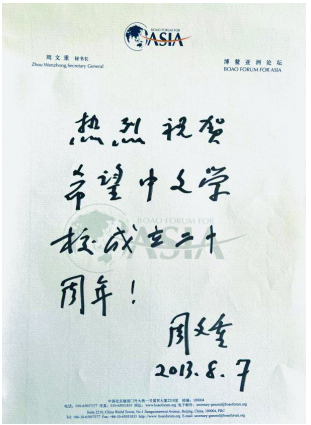 BOAO FORUM FOR
ASIA
周文重 秘书长
Zhou Wenzhong, Secretary General
博鳌亚洲论坛
BOAO FORUM FOR ASIA
热烈祝贺
希望中文学
BOAO FORUM FOR
ASIA
校成立二十
周年！
周文重
2013.8.7